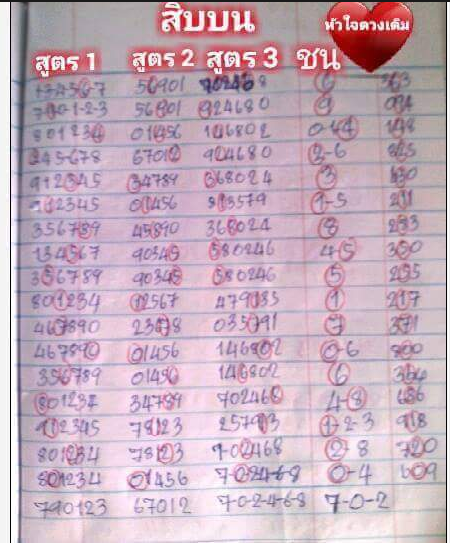 สิบบน
หัวใจดวงเดิม
สูตร 1 สูตร 2 สูตร 3 ชน
134567 56901 702468 6 363
790-1-2-3 56901 924680 9 094
801234 01456 146802 0-4 148
245678 67012 924680 2-6 825
912345 34789 368024 3 430
912345 01456 813579 1-5 211
356789 45890 368024 8 283
134567 90345 580246 4-5 350
356789 90345 580246 5 255
801234 12567 479135 1 217
467890 23678 035791 7 371
467890 01456 146802 0-6 800
356789 01456 146802 6 364
801234 34789 702468 4-8 686
912345 78123 257913 1-2-3 918
801234 78123 7-02468 2-8 720
801234 01456 7-0-24-6-8 0-4 609
790123 67012 7-0-2-4-6-8 7-0-2